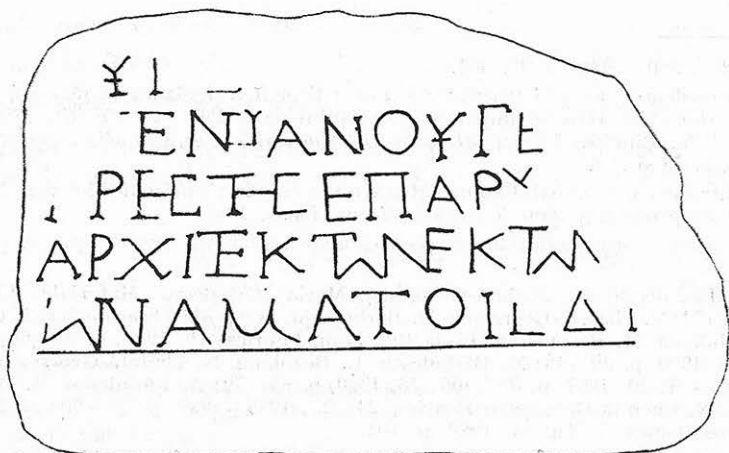 ¥Ι
ΕΝΙΑΝΟΥΓΕ
ΡΙΕΣΤΕΕΠΑΡΥ
ΑΡΧΙΤΕΚΤΩΝΕΚΤΩ
ΩΝΑΜΑΤΟΠΕΔΙ